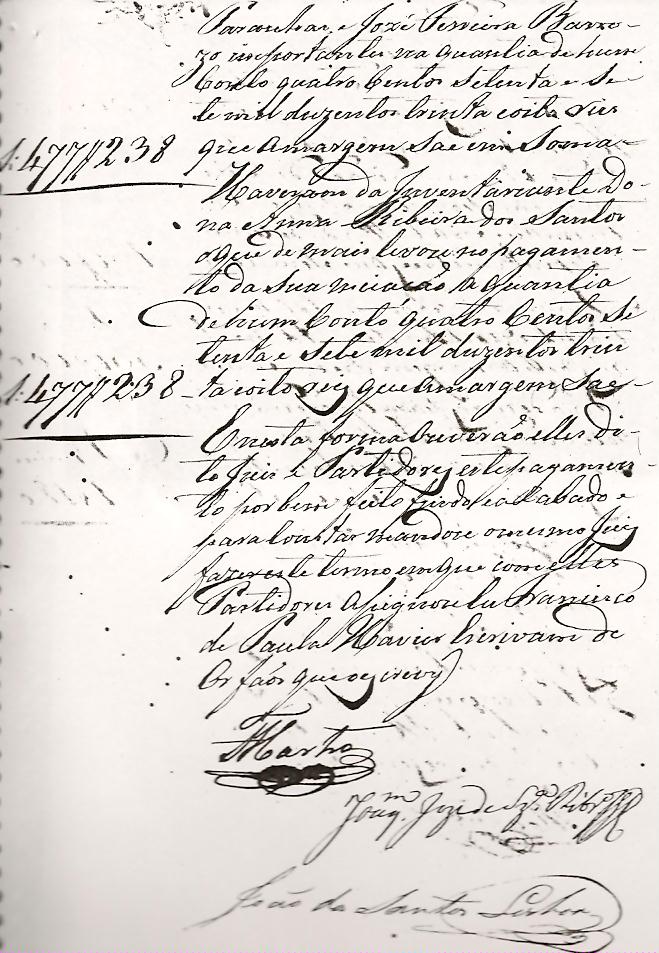 Paranhos, e José Ferreira Barro-
zo importantes na quantia de hum
Conto quatro Centos Setenta e Se
te mil duzentos trinta e oito reis
que a margem Sae em Soma-
1:477//238
Haverão da Inventariante Do
na Anna Ribeira dos Santos
o que de mais levou no pagamen-
to da sua meiação a quantia
de hum Conto quatro Centos Se
tenta e Sete mil duzentos trin
ta e oito reis que a margem Sae-
1:477//238
E nesta forma houverão elles di-
to Juis e Partidores este pagamen-
to por bem feito findo e acabado e
para Constar mandou o mesmo Juis
fazer este termo em que com elles
Partidores asignou eu Francisco
de Paula Xavier Escrivam de
Orfãos que escrevy
Joaqm Joze de Sza Ribro
João dos Santos Lisboa